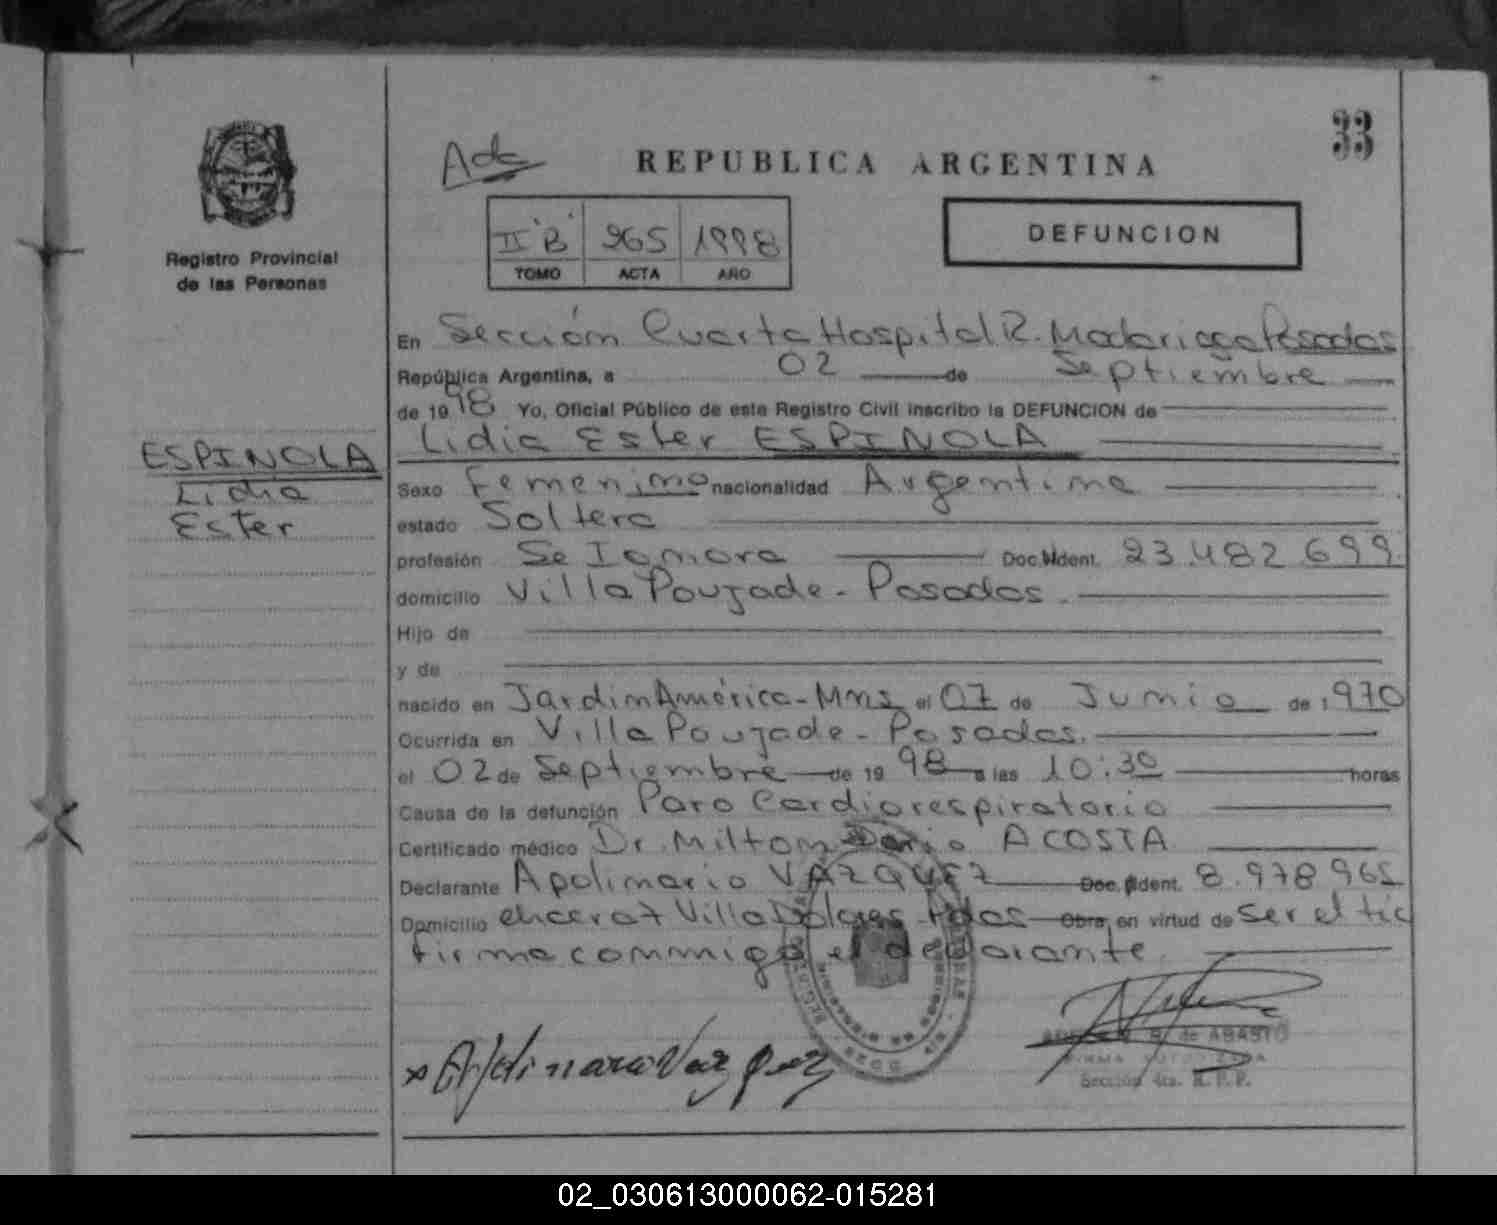 33
REPUBLICA ARGENTINA
II "B" 965 1998
TOMO ACTA AÑO
DEFUNCION
Registro Provincial
de las Personas
En Sección Cuarta Hospital R. Madariaga Posadas
República Argentina, a 02 de Septiembre
de 1998 Yo, Oficial Público de este Registro Civil inscribo la DEFUNCION de
Lidia Ester ESPINOLA
ESPINOLA
Lidia
Ester
Sexo Femenino nacionalidad Argentina
estado Soltera
profesión Se Ignora Doc. Ident. 23.482 699.
domicilio Villa Poujade - Posadas.
Hijo de
y de
nacido en Jardin América - Mnes el 07 de Junio de 1970
Ocurrida en Villa Poujade - Posadas.
el 02 de Septiembre de 19 98 a las 10:30 horas
Causa de la defunción Paro Cardiorespiratorio
Certificado médico Dr. Milton Dario ACOSTA
Declarante Apolinario VAZQUEZ Doc. Ident. 8.978 965
Domicilio Villa Dolores - Pdas Obra en virtud de Ser el tio
firma conmigo el declarante.
de ABASTO
FIRMA AUTORIZADA
Sección 4ta. R.P.P.
02_030613000062-015281